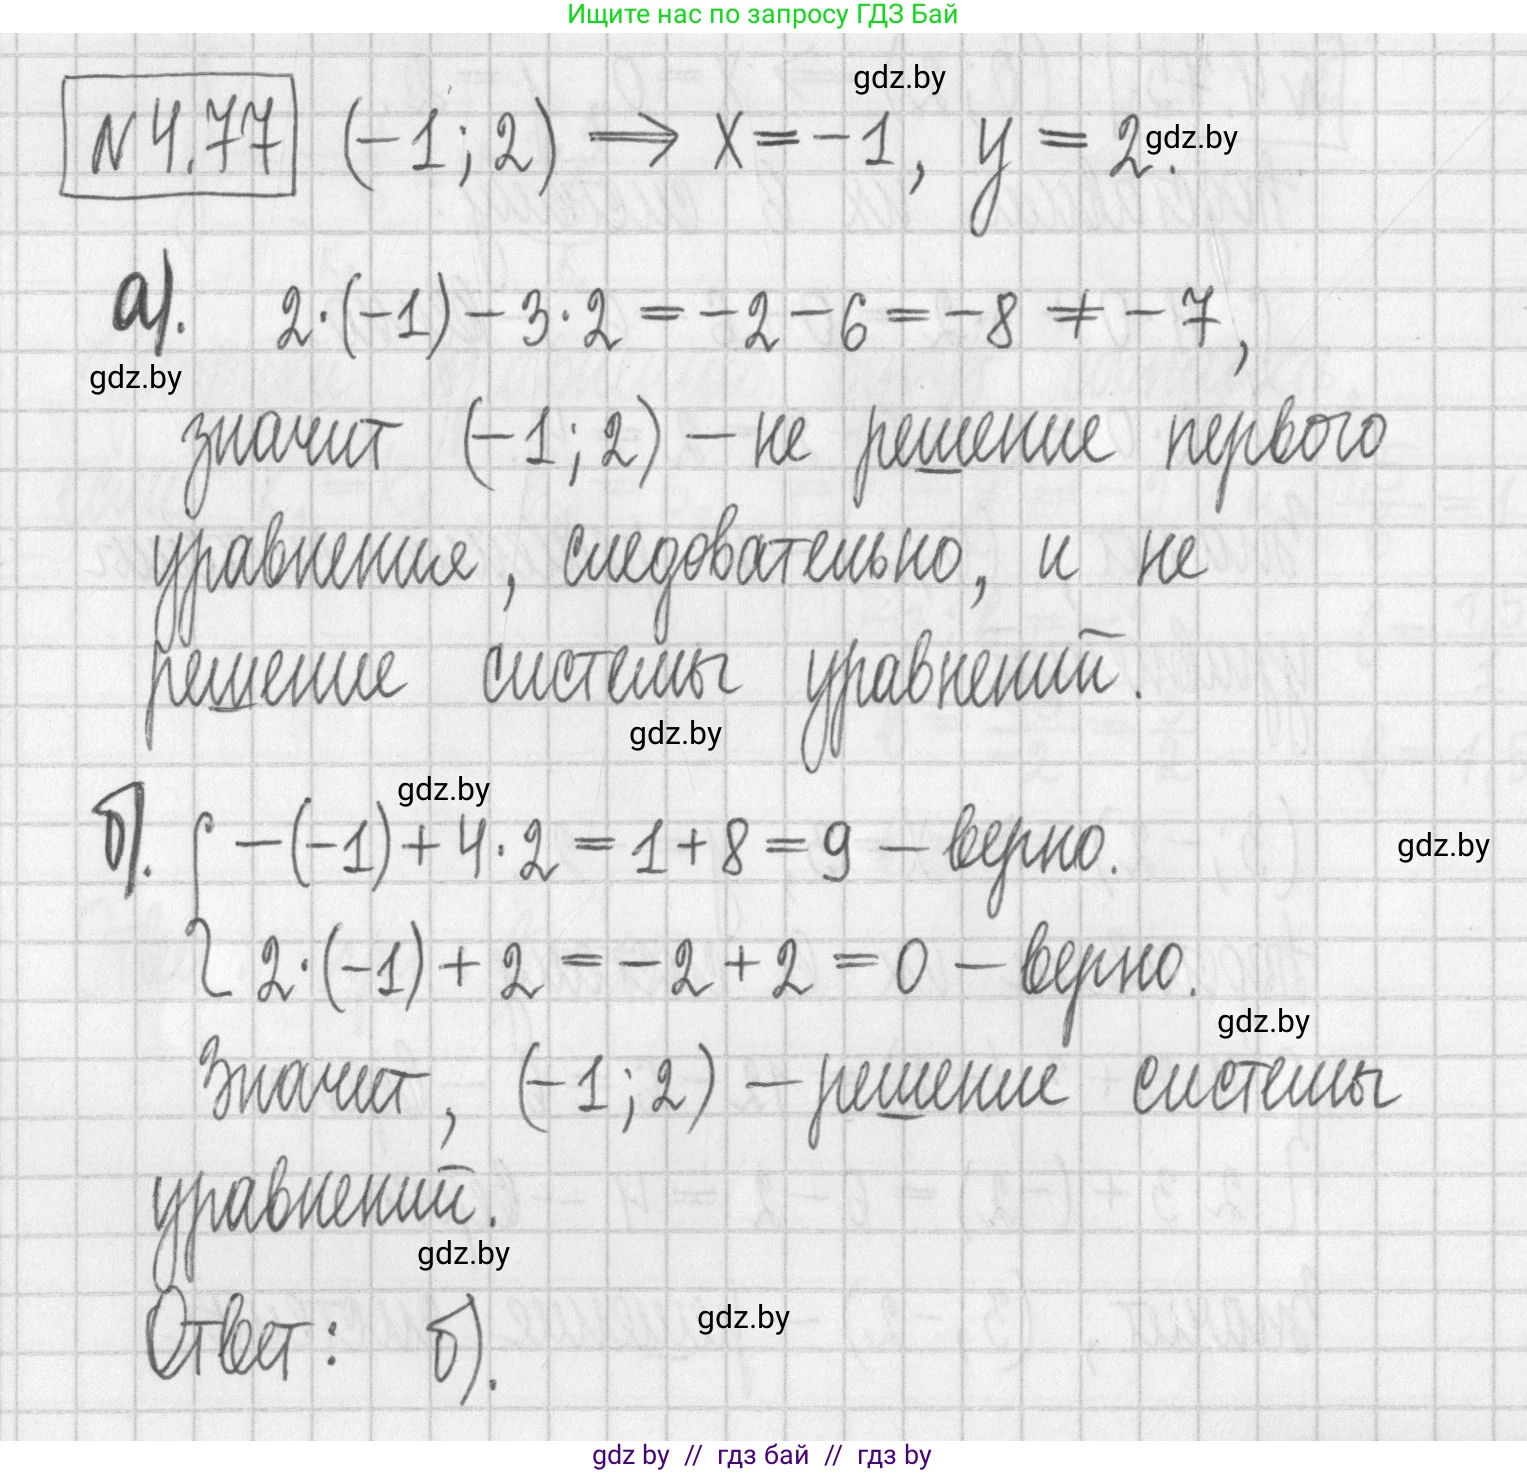 Ищите нас по запросу ГДЗ Бай
gdz.by
N 4.77 (-1; 2) ⟹ x = -1, y = 2.
gdz.by
а). 2·(-1) - 3·2 = -2 - 6 = -8 ≠ -7,
gdz.by
значит (-1; 2) - не решение первого
уравнения, следовательно, и не
решение системы уравнений.
gdz.by
gdz.by
б). { -(-1) + 4·2 = 1 + 8 = 9 - верно.
gdz.by
2·(-1) + 2 = -2 + 2 = 0 - верно.
gdz.by
Значит, (-1; 2) - решение системы
уравнений.
gdz.by
Ответ: б).
gdz.by
gdz by // гдз бай // гдз by